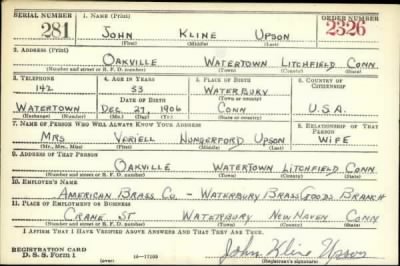 SERIAL NUMBER 1. NAME (Print) ORDER NUMBER
281 JOHN KLINE UPSON 2326
(First) (Middle) (Last)
2. ADDRESS (Print)
OAKVILLE WATERTOWN LITCHFIELD CONN.
(Number and street or R. F. D. number) (Town) (County) (State)
3. TELEPHONE 4. AGE IN YEARS 5. PLACE OF BIRTH 6. COUNTRY OF CITIZENSHIP
142 33 WATERBURY
DATE OF BIRTH (Town or county)
WATERTOWN DEC 27, 1906 CONN U.S.A.
(Exchange) (Number) (Mo.) (Day) (Yr.) (State or country)
7. NAME OF PERSON WHO WILL ALWAYS KNOW YOUR ADDRESS 8. RELATIONSHIP OF THAT PERSON
MRS HUNGERFORD UPSON WIFE
(Mr., Mrs., Miss) (First) (Middle) (Last)
9. ADDRESS OF THAT PERSON
OAKVILLE WATERTOWN LITCHFIELD CONN.
(Number and street or R. F. D. number) (Town) (County) (State)
10. EMPLOYER'S NAME
AMERICAN BRASS CO - WATERBURY BRASS GOODS BRANCH
11. PLACE OF EMPLOYMENT OR BUSINESS
CRANE ST WATERBURY NEW HAVEN CONN
(Number and street or R. F. D. number) (Town) (County) (State)
I AFFIRM THAT I HAVE VERIFIED ABOVE ANSWERS AND THAT THEY ARE TRUE.
REGISTRATION CARD
D. S. S. Form 1 (over) John Kline Upson
(Registrant's signature)